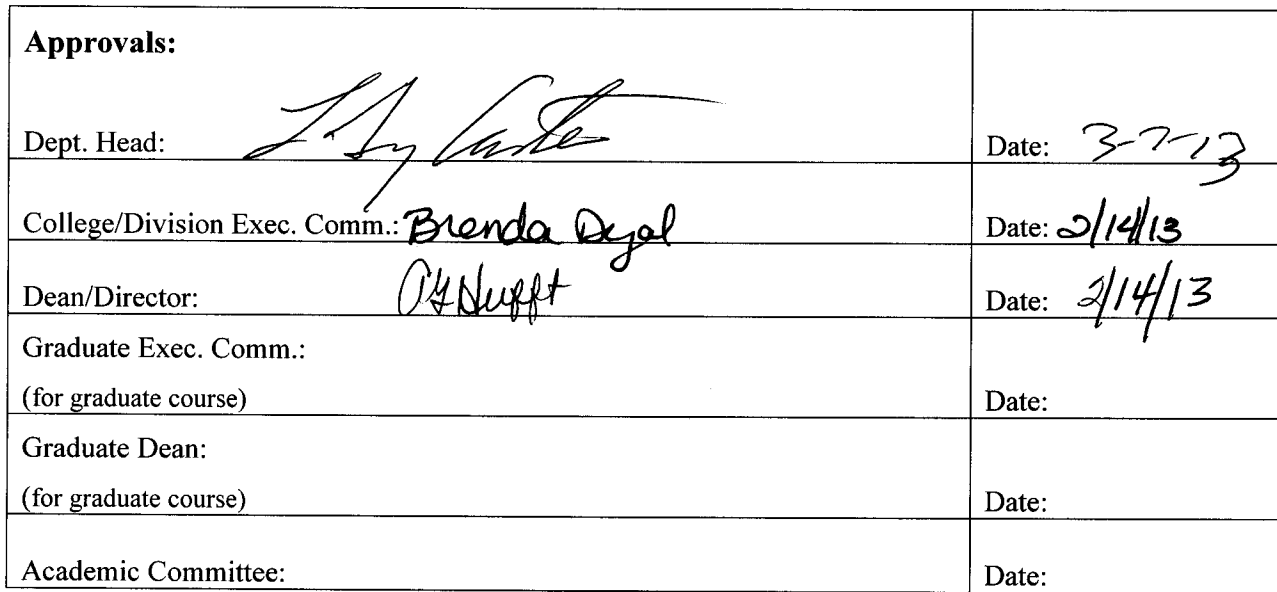 Approvals:
Dept. Head: Date: 3-7-13
College/Division Exec. Comm.: Brenda Dyal Date: 2/14/13
Dean/Director: Hufft Date: 2/14/13
Graduate Exec. Comm.:
(for graduate course) Date:
Graduate Dean:
(for graduate course) Date:
Academic Committee: Date: